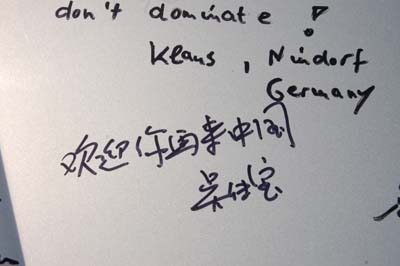 don't dominate !
Klaus, Nindorf
Germany
欢迎你再来中国